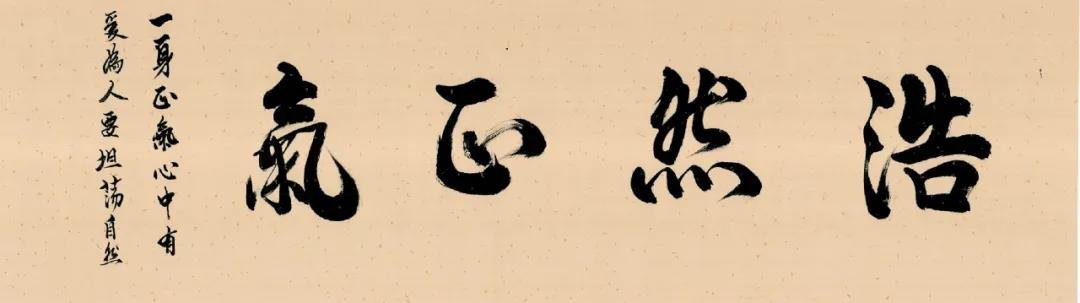 浩然正氣
一身正氣心中有
爱為人要坦荡自然